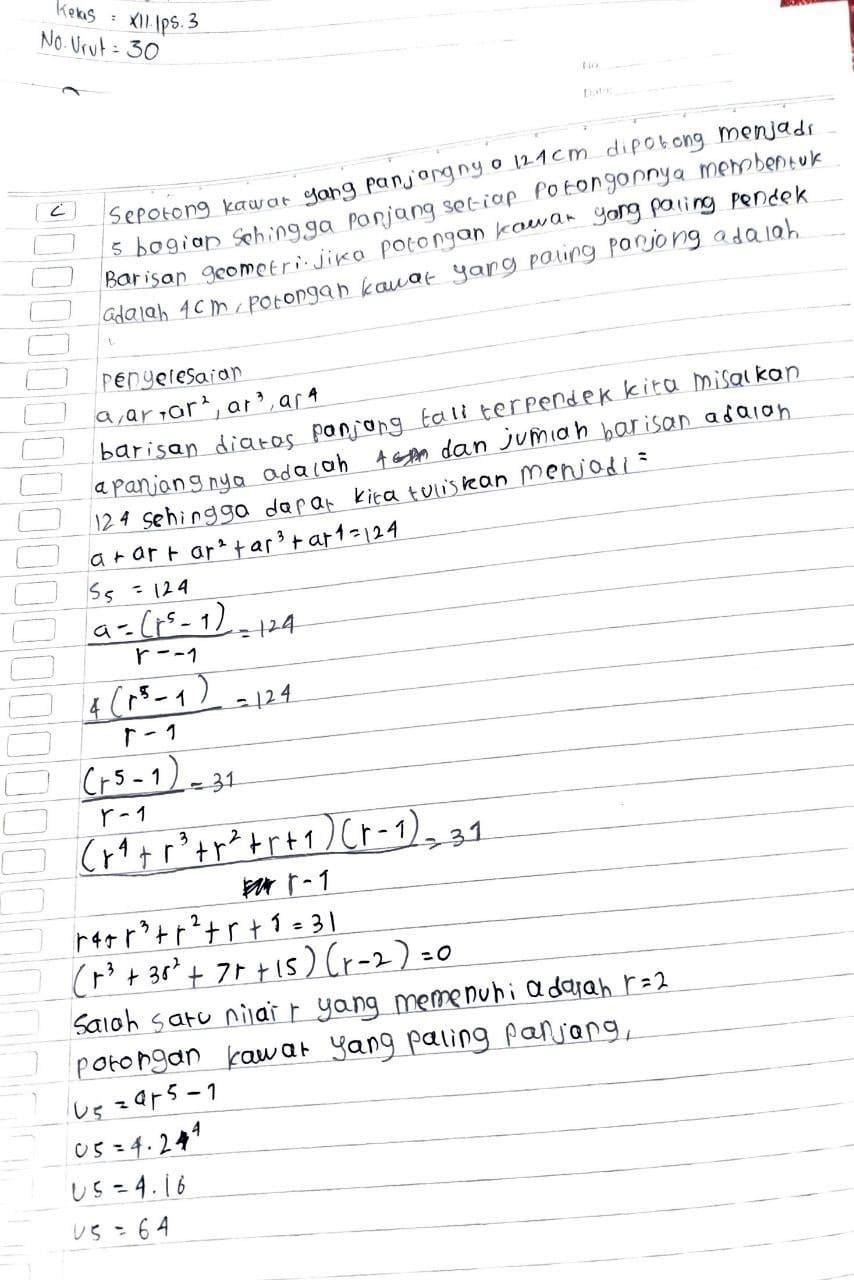 Kelas : XII.Ips.3
No.Urut = 30
No
Date
2 Sepotong kawat yang panjangnya 124cm dipotong menjadi
5 bagian sehingga panjang setiap potongannya membentuk
Barisan geometri. jika potongan kawat yang paling pendek
adalah 4cm, potongan kawat yang paling panjang adalah
penyelesaian
a, ar, ar², ar³, ar4
barisan diatas panjang tali terpendek kita misalkan
a panjangnya adalah 4cm dan jumlah barisan adalah
124 sehingga dapat kita tuliskan menjadi =
a + ar + ar² + ar³ + ar4 = 124
S5 = 124
a = (r⁵ - 1) = 124
r - -1
4 (r⁵ - 1) = 124
r - 1
(r5 - 1) = 31
r - 1
(r⁴ + r³ + r² + r + 1) (r - 1) = 31
r - 1
r4 + r³ + r² + r + 1 = 31
(r³ + 3r² + 7r + 15) (r - 2) = 0
Salah satu nilai r yang memenuhi adalah r = 2
potongan kawat yang paling panjang,
U5 = ar5 - 1
U5 = 4 . 2⁴
U5 = 4 . 16
U5 = 64